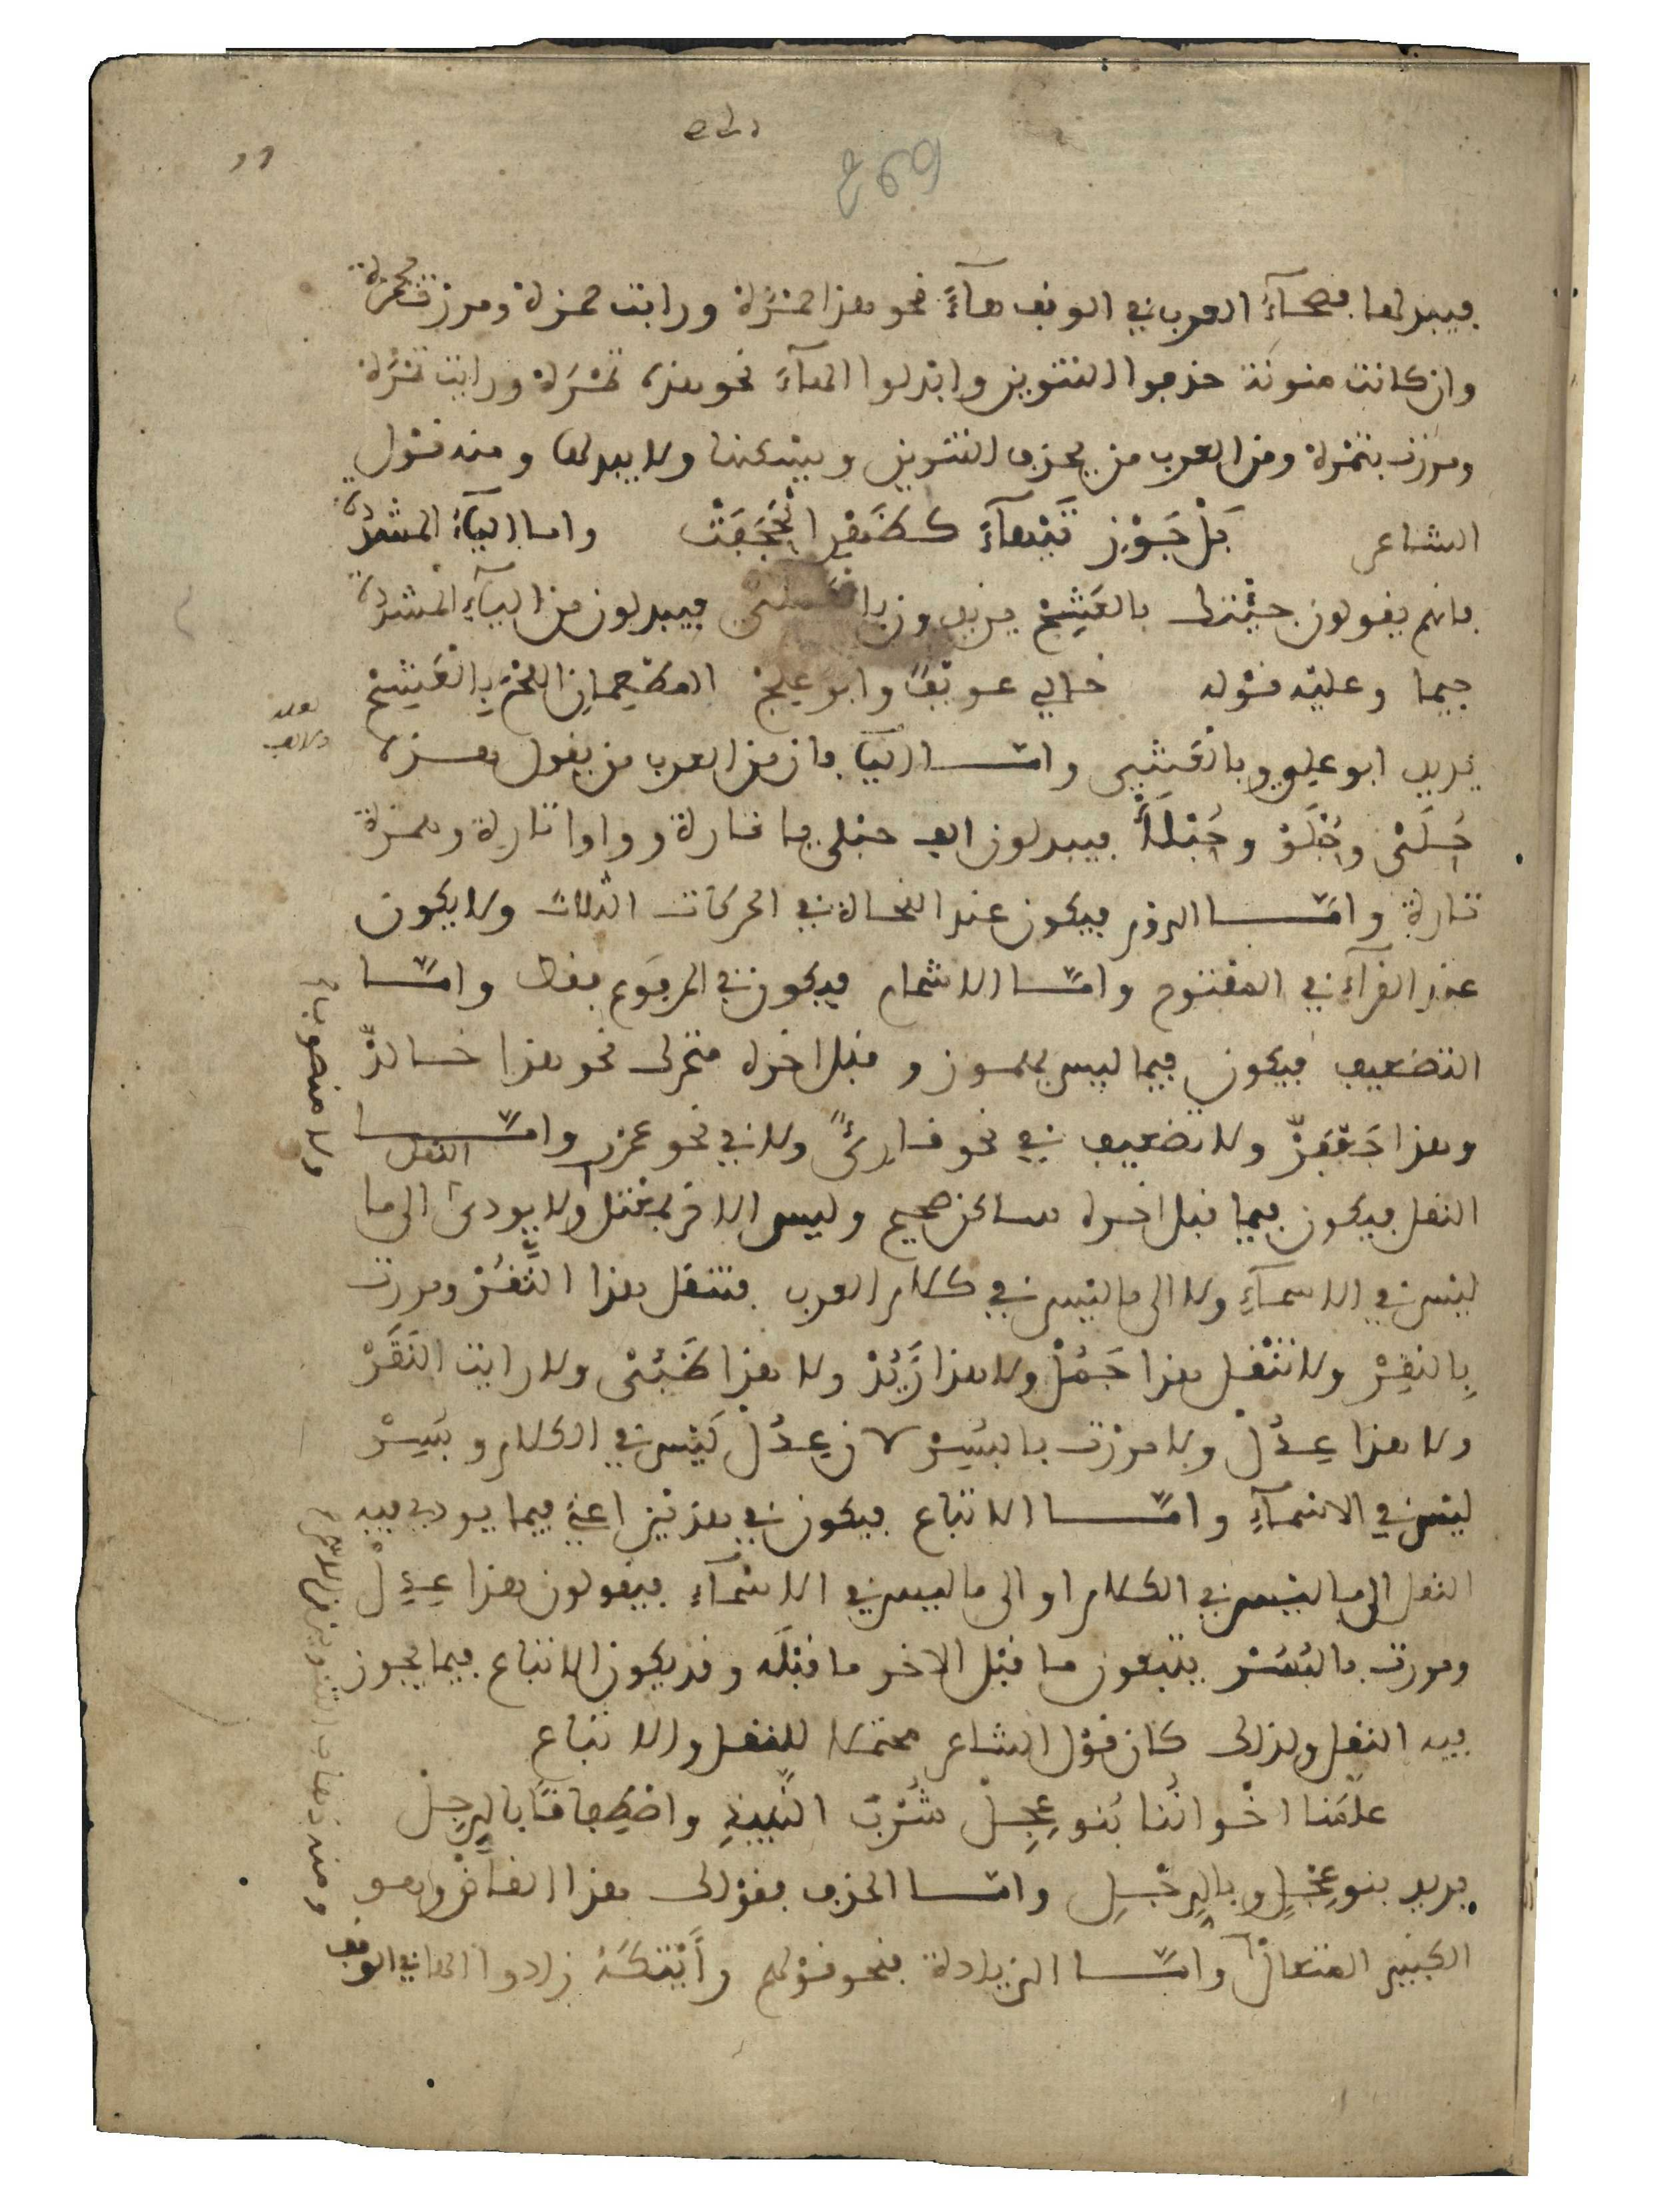 فيبدلها فصحآء العرب في الوقف هآءً نحو هذا حمْزَة ورايت حمزة ومررت بحمزة
وان كانت منونة حذفوا التنوين وابْدلوا الهآءَ نحو هذه تمْرَة ورايت تمْرَة
ومررت بتمْرة ومن العرب من يحذف التنوين ويسْكنها ولا يبدلها ومنه قوْل
الشاعر بَلْ جَوْزِ تَيْهآءَ كظَهْرِ الْحَجَفَتْ واما اليآءُ المشددة
فانهم يقولون جيْتك بالعَشِجْ يريدون بالعشي فيبدلون من اليآءِ المشددة
جيما وعليْه قوْله خالي عويْفٌ وابو علِجْ المطْعِمانِ اللحْمَ بِالْعَشِجْ
يريد ابو علِي وبالْعَشِي وامّا اليآ فان من العرب من يقول هذه
حُبْلَىْ وحُبْلَوْ وحُبْلَأْ فيبدلون الف حبْلى يا تارة وواوا تارة وهمزة
تارة وامّا الروْم فيكون عند النحاة في الحركات الثلاث ولا يكون
عند القرآء في المفتوح وامّا الاشمام فيكون في المرفوع فقط وامّا
التضعيف فيكون فيما ليس بمهموز وقبل اخره متحرك نحو هذا خالدّ
وهذا جَعْفَرّ ولا تضعيف في نحو قارئ ولا في نحو عمرو وامّا
النقل
النقل فيكون فيما قبل اخره ساكن صحيح وليس الاخر بمعْتل ولا يودي الى ما
ليْس في الاسمآءِ ولا الى ما ليْس في كلام العرب فتنقل هذا النَّقُرْ ومررت
بِالنقِرْ ولا تنْقل هذا جَمُلْ ولا هذا زَيُدْ ولا هذا ظَبُىْ ولا رايت النقَرْ
ولا هذا عِدُلْ ولا مررْت بالبُسِرْ لان عِدُلْ ليْس في الكلام وبُسِرْ
ليْس في الاسْمآءِ وامّا الاتباع فيكون في هذيْن اعني فيما يودي فيه
النقل الى ما ليْس في الكلام او الى ما ليس في الاسْمآءِ فيقولون هذا عِدِلْ
ومررت بالبُسُرْ يتبعون ما قبل الاخر ما قبْلَه وقد يكون الاتباع فيما يجوز
فيه النقل ولذلك كان قوْل الشاعر محتملا للنقل والاتباع
علّمَنا اخْوانُنا بَنو عِجِلْ شُرْبَ النَّبِيذِ واصْطِفافا بِالرِجِلْ
يريد بنو عِجْلٍ وبالرِجْلِ وامّا الحذف فقوْلك هذا القاضْ وهو
الكبير المتعالْ وامّا الزيادة فنحو قوْلهم رأَيْتكَهْ زادوا الها في الوقف
ولا منصوبا